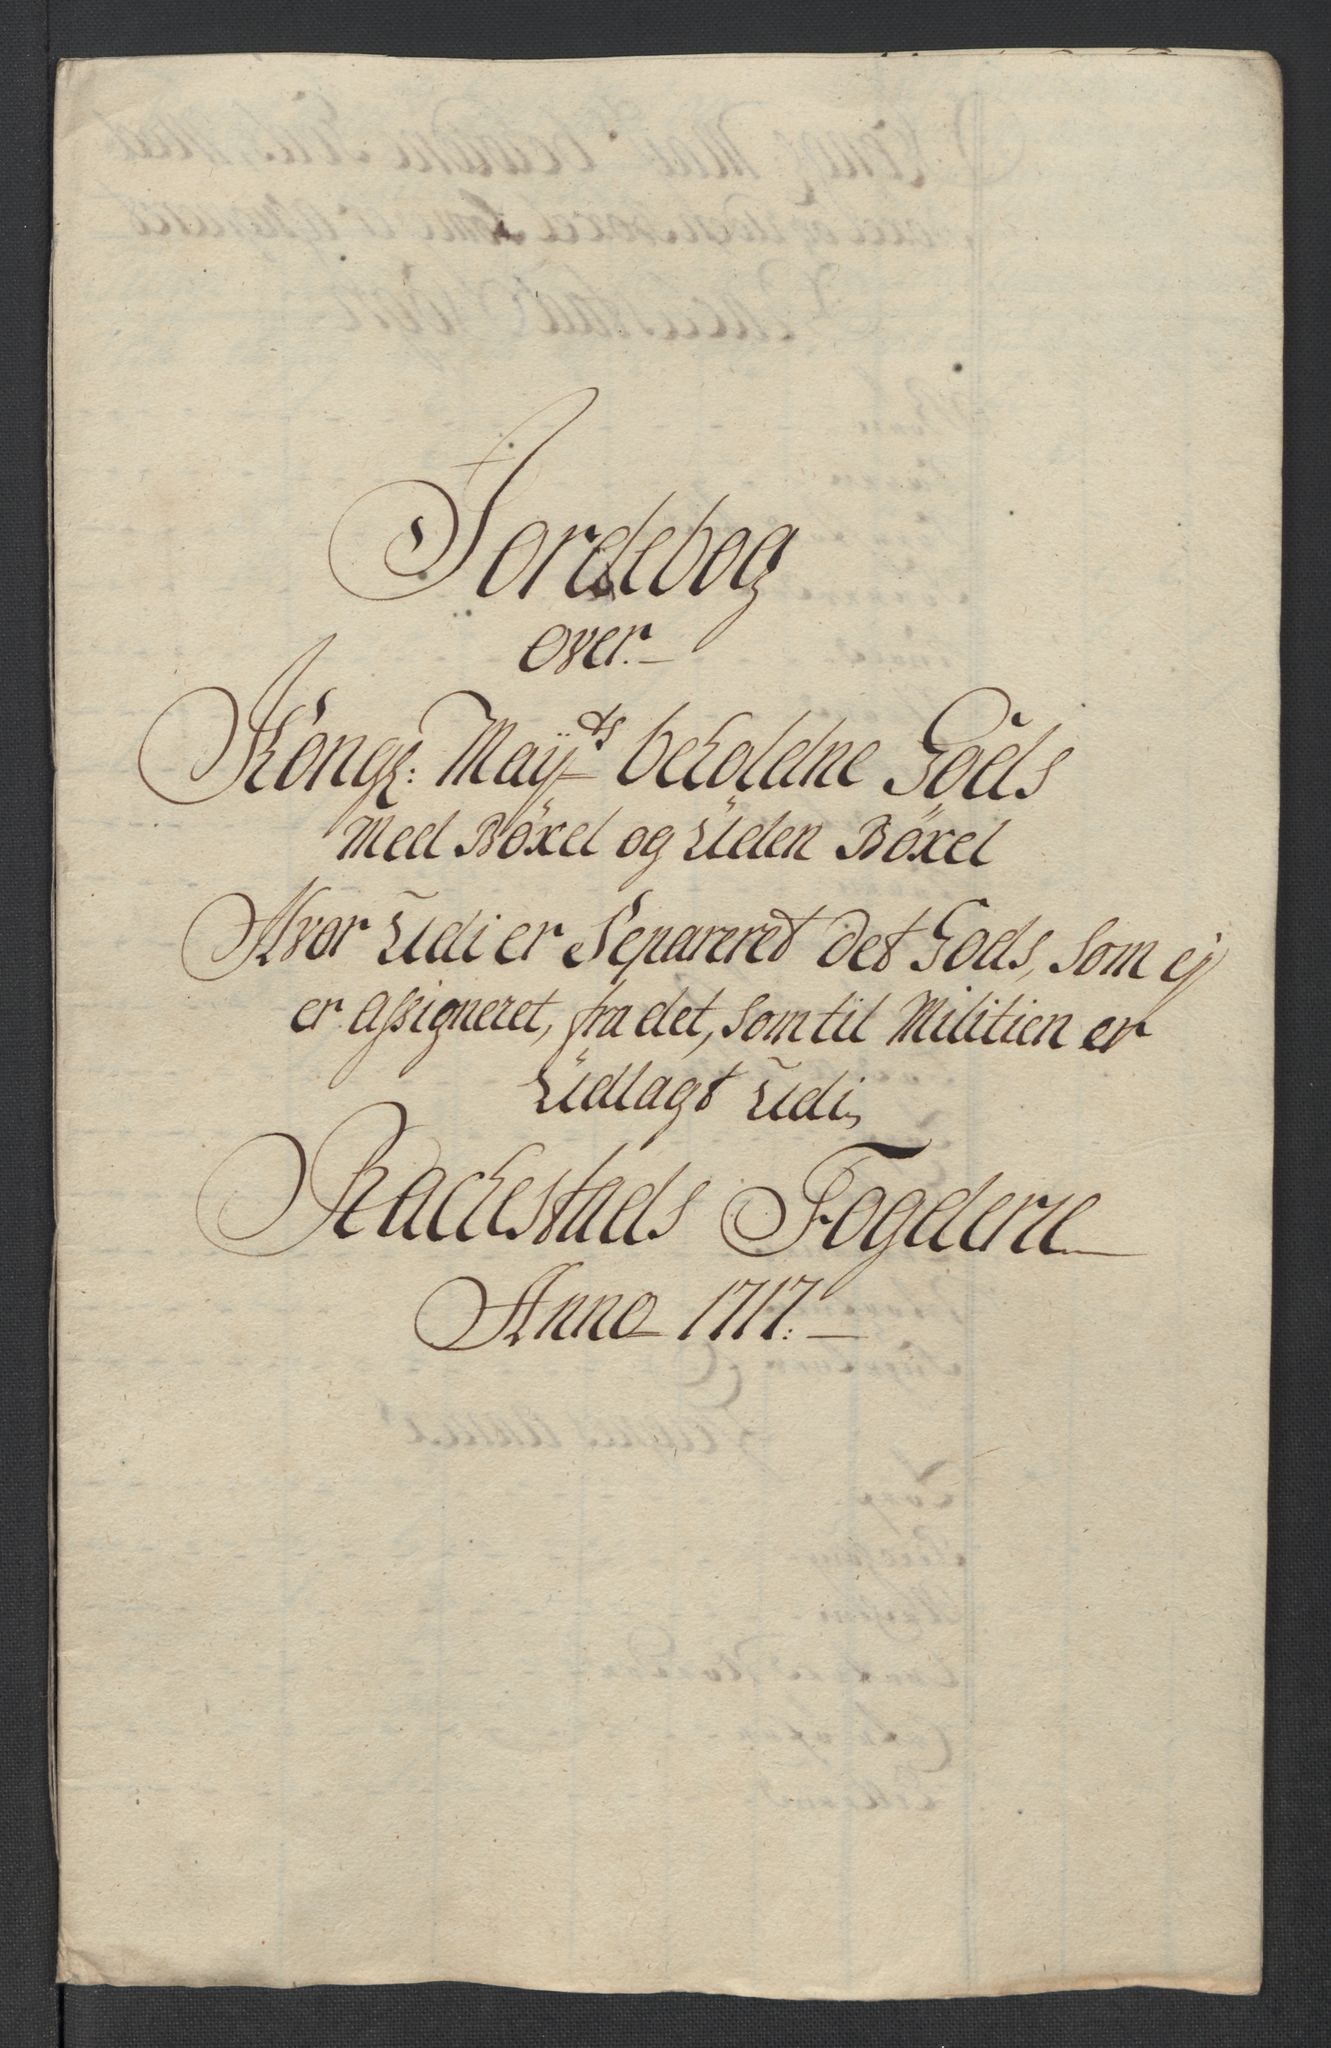 Jordebog
over.
Kongl: Mayts beholdne Goeds
Med Böxel og Uden Böxel
Hvor Udi er Separeret det Gods, som ej
er assigneret, fra det, som til Militien er
Udlagt Udi,
Rackestads Fogderie
Anno 1717.